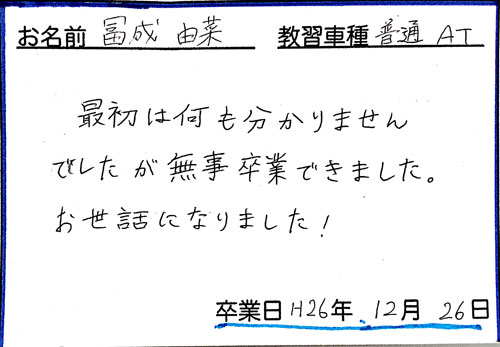 お名前 冨成 由菜 教習車種 普通 AT
最初は何も分かりません
でしたが無事卒業できました。
お世話になりました!
卒業日 H26年 12月 26日